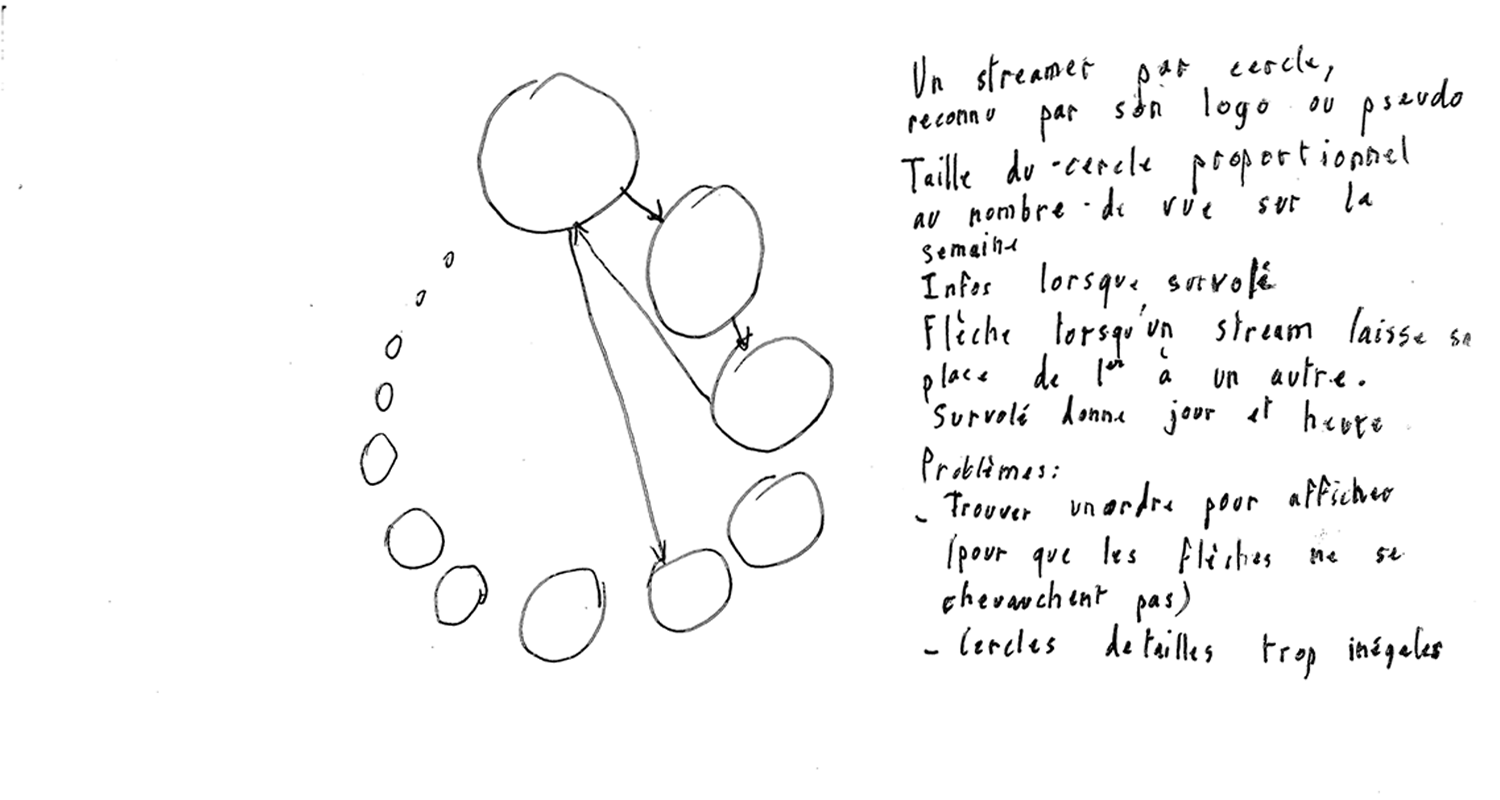 Un streamer par cercle,
reconnu par son logo ou pseudo
Taille du cercle proportionnel
au nombre de vue sur la
semaine
Infos lorsque survolé
Flèche lorsqu'un stream laisse sa
place de 1er à un autre.
Survolé donne jour et heure
Problèmes:
- Trouver un ordre pour afficher
(pour que les flèches ne se
chevauchent pas)
- Cercles de tailles trop inégales